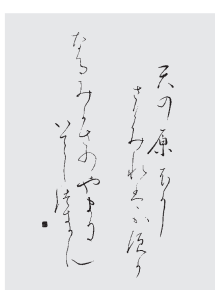 天の原ふり
さけみれはか須か
なるみかさのやまに
いてし徒きかも